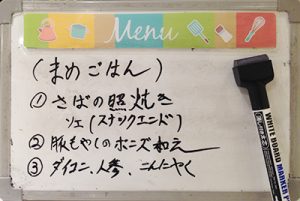 Menu
(まめごはん)
① さばの照焼き
ソエ(スナックエンド)
② 豚もやしのポンズ和え
③ ダイコン、人参、こんにゃく
WHITE BOARD MARKER